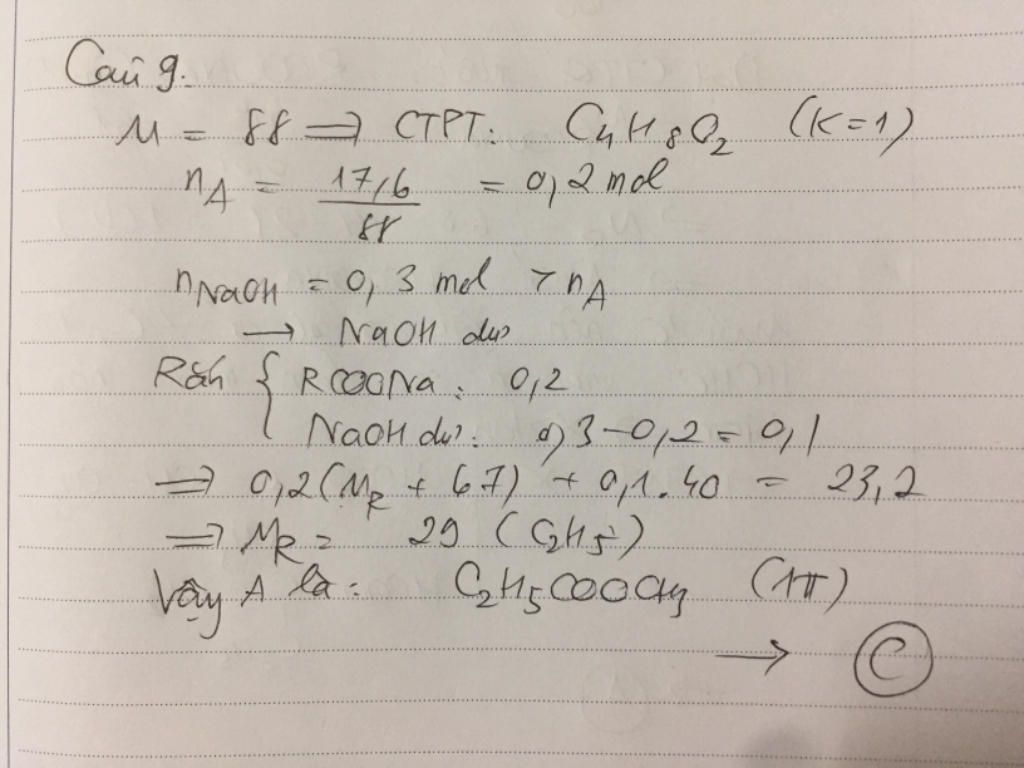 Câu 9.
M = 88 => CTPT: C4H8O2 (K=1)
nA = 17,6 / 88 = 0,2 mol
nNaOH = 0,3 mol > nA
→ NaOH dư
Rắn { RCOONa: 0,2
NaOH dư: 0,3 - 0,2 = 0,1
=> 0,2(MR + 67) + 0,1.40 = 23,2
=> MR = 29 (C2H5)
Vậy A là: C2H5COOCH3 (1π)
→ C